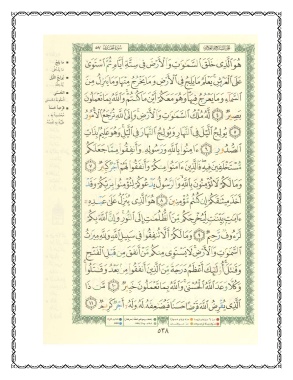 هُوَ ٱلَّذِى خَلَقَ ٱلسَّمَٰوَٰتِ وَٱلْأَرْضَ فِى سِتَّةِ أَيَّامٍ ثُمَّ ٱسْتَوَىٰ
عَلَى ٱلْعَرْشِ يَعْلَمُ مَا يَلِجُ فِى ٱلْأَرْضِ وَمَا يَخْرُجُ مِنْهَا وَمَا يَنزِلُ مِنَ
ٱلسَّمَآءِ وَمَا يَعْرُجُ فِيهَا وَهُوَ مَعَكُمْ أَيْنَ مَا كُنتُمْ وَٱللَّهُ بِمَا تَعْمَلُونَ
بَصِيرٌ ٤ لَّهُۥ مُلْكُ ٱلسَّمَٰوَٰتِ وَٱلْأَرْضِ وَإِلَى ٱللَّهِ تُرْجَعُ ٱلْأُمُورُ
٥ يُولِجُ ٱلَّيْلَ فِى ٱلنَّهَارِ وَيُولِجُ ٱلنَّهَارَ فِى ٱلَّيْلِ وَهُوَ عَلِيمٌۢ بِذَاتِ
ٱلصُّدُورِ ٦ ءَامِنُوا۟ بِٱللَّهِ وَرَسُولِهِۦ وَأَنفِقُوا۟ مِمَّا جَعَلَكُم
مُّسْتَخْلَفِينَ فِيهِ فَٱلَّذِينَ ءَامَنُوا۟ مِنكُمْ وَأَنفَقُوا۟ لَهُمْ أَجْرٌ كَبِيرٌ ٧
وَمَا لَكُمْ لَا تُؤْمِنُونَ بِٱللَّهِ وَٱلرَّسُولُ يَدْعُوكُمْ لِتُؤْمِنُوا۟ بِرَبِّكُمْ وَقَدْ
أَخَذَ مِيثَٰقَكُمْ إِن كُنتُم مُّؤْمِنِينَ ٨ هُوَ ٱلَّذِى يُنَزِّلُ عَلَىٰ عَبْدِهِۦٓ
ءَايَٰتٍۭ بَيِّنَٰتٍ لِّيُخْرِجَكُم مِّنَ ٱلظُّلُمَٰتِ إِلَى ٱلنُّورِ وَإِنَّ ٱللَّهَ بِكُمْ
لَرَءُوفٌ رَّحِيمٌ ٩ وَمَا لَكُمْ أَلَّا تُنفِقُوا۟ فِى سَبِيلِ ٱللَّهِ وَلِلَّهِ مِيرَٰثُ
ٱلسَّمَٰوَٰتِ وَٱلْأَرْضِ لَا يَسْتَوِى مِنكُم مَّنْ أَنفَقَ مِن قَبْلِ ٱلْفَتْحِ
وَقَٰتَلَ أُو۟لَٰٓئِكَ أَعْظَمُ دَرَجَةً مِّنَ ٱلَّذِينَ أَنفَقُوا۟ مِنۢ بَعْدُ وَقَٰتَلُوا۟
وَكُلًّا وَعَدَ ٱللَّهُ ٱلْحُسْنَىٰ وَٱللَّهُ بِمَا تَعْمَلُونَ خَبِيرٌ ١٠ مَّن ذَا
ٱلَّذِى يُقْرِضُ ٱللَّهَ قَرْضًا حَسَنًا فَيُضَٰعِفَهُۥ لَهُۥ وَلَهُۥٓ أَجْرٌ كَرِيمٌ ١١
٥٣٨